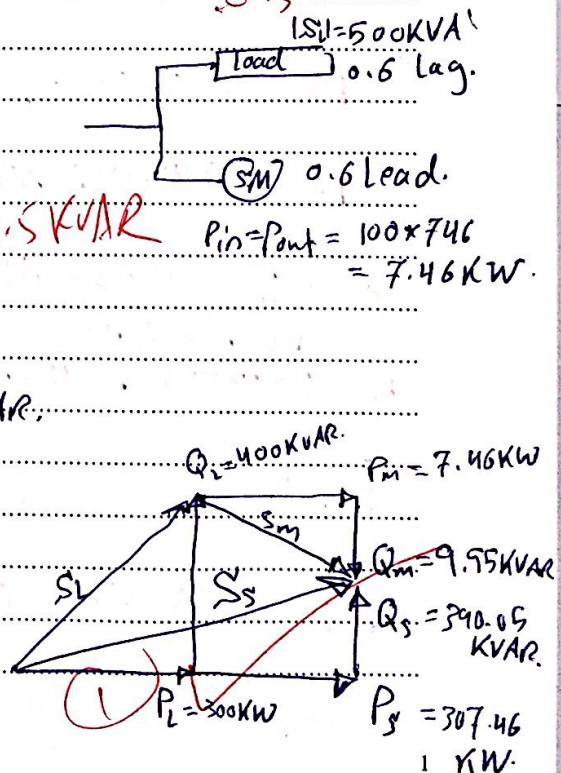 |SL|=500KVA
Load 0.6 Lag.
SM 0.6 Lead.
.5 KVAR
Pin=Pout = 100*746
= 7.46KW.
AR,
QL=400KVAR.
Pm = 7.46KW
Sm
Qm=9.95KVAR
SL
Ss
Qs=390.05
KVAR.
1
PL=300KW
Ps = 307.46
KW.
1